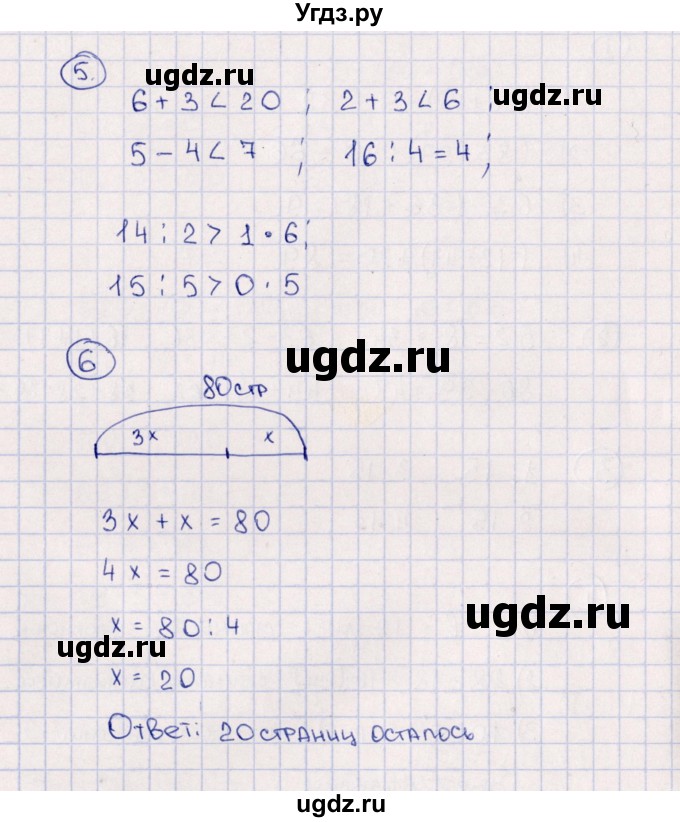 Угдз.ру
5.
ugdz.ru
6 + 3 < 20 ; 2 + 3 < 6 ;
ugdz.ru
5 - 4 < 7 ; 16 : 4 = 4 ;
14 : 2 > 1 · 6 ;
15 : 5 > 0 · 5
6
ugdz.ru
80 стр
3x x
3x + x = 80
4x = 80
ugdz.ru
x = 80 : 4
ugdz.ru
x = 20
Ответ: 20 страниц осталось
ugdz.ru